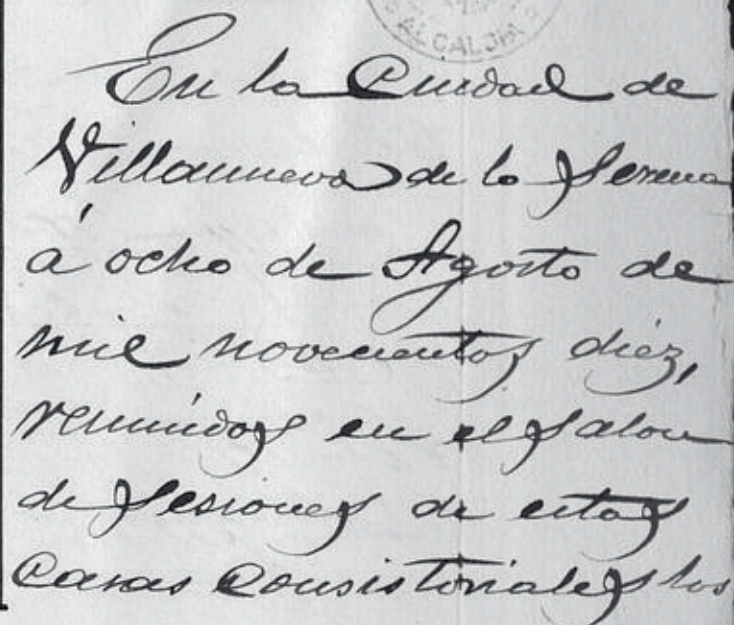 ALCALDIA
En la Ciudad de
Villanueva de la Serena
á ocho de Agosto de
mil novecientos diéz,
reunidos en el Salon
de Sesiones de estas
Casas Consistoriales los